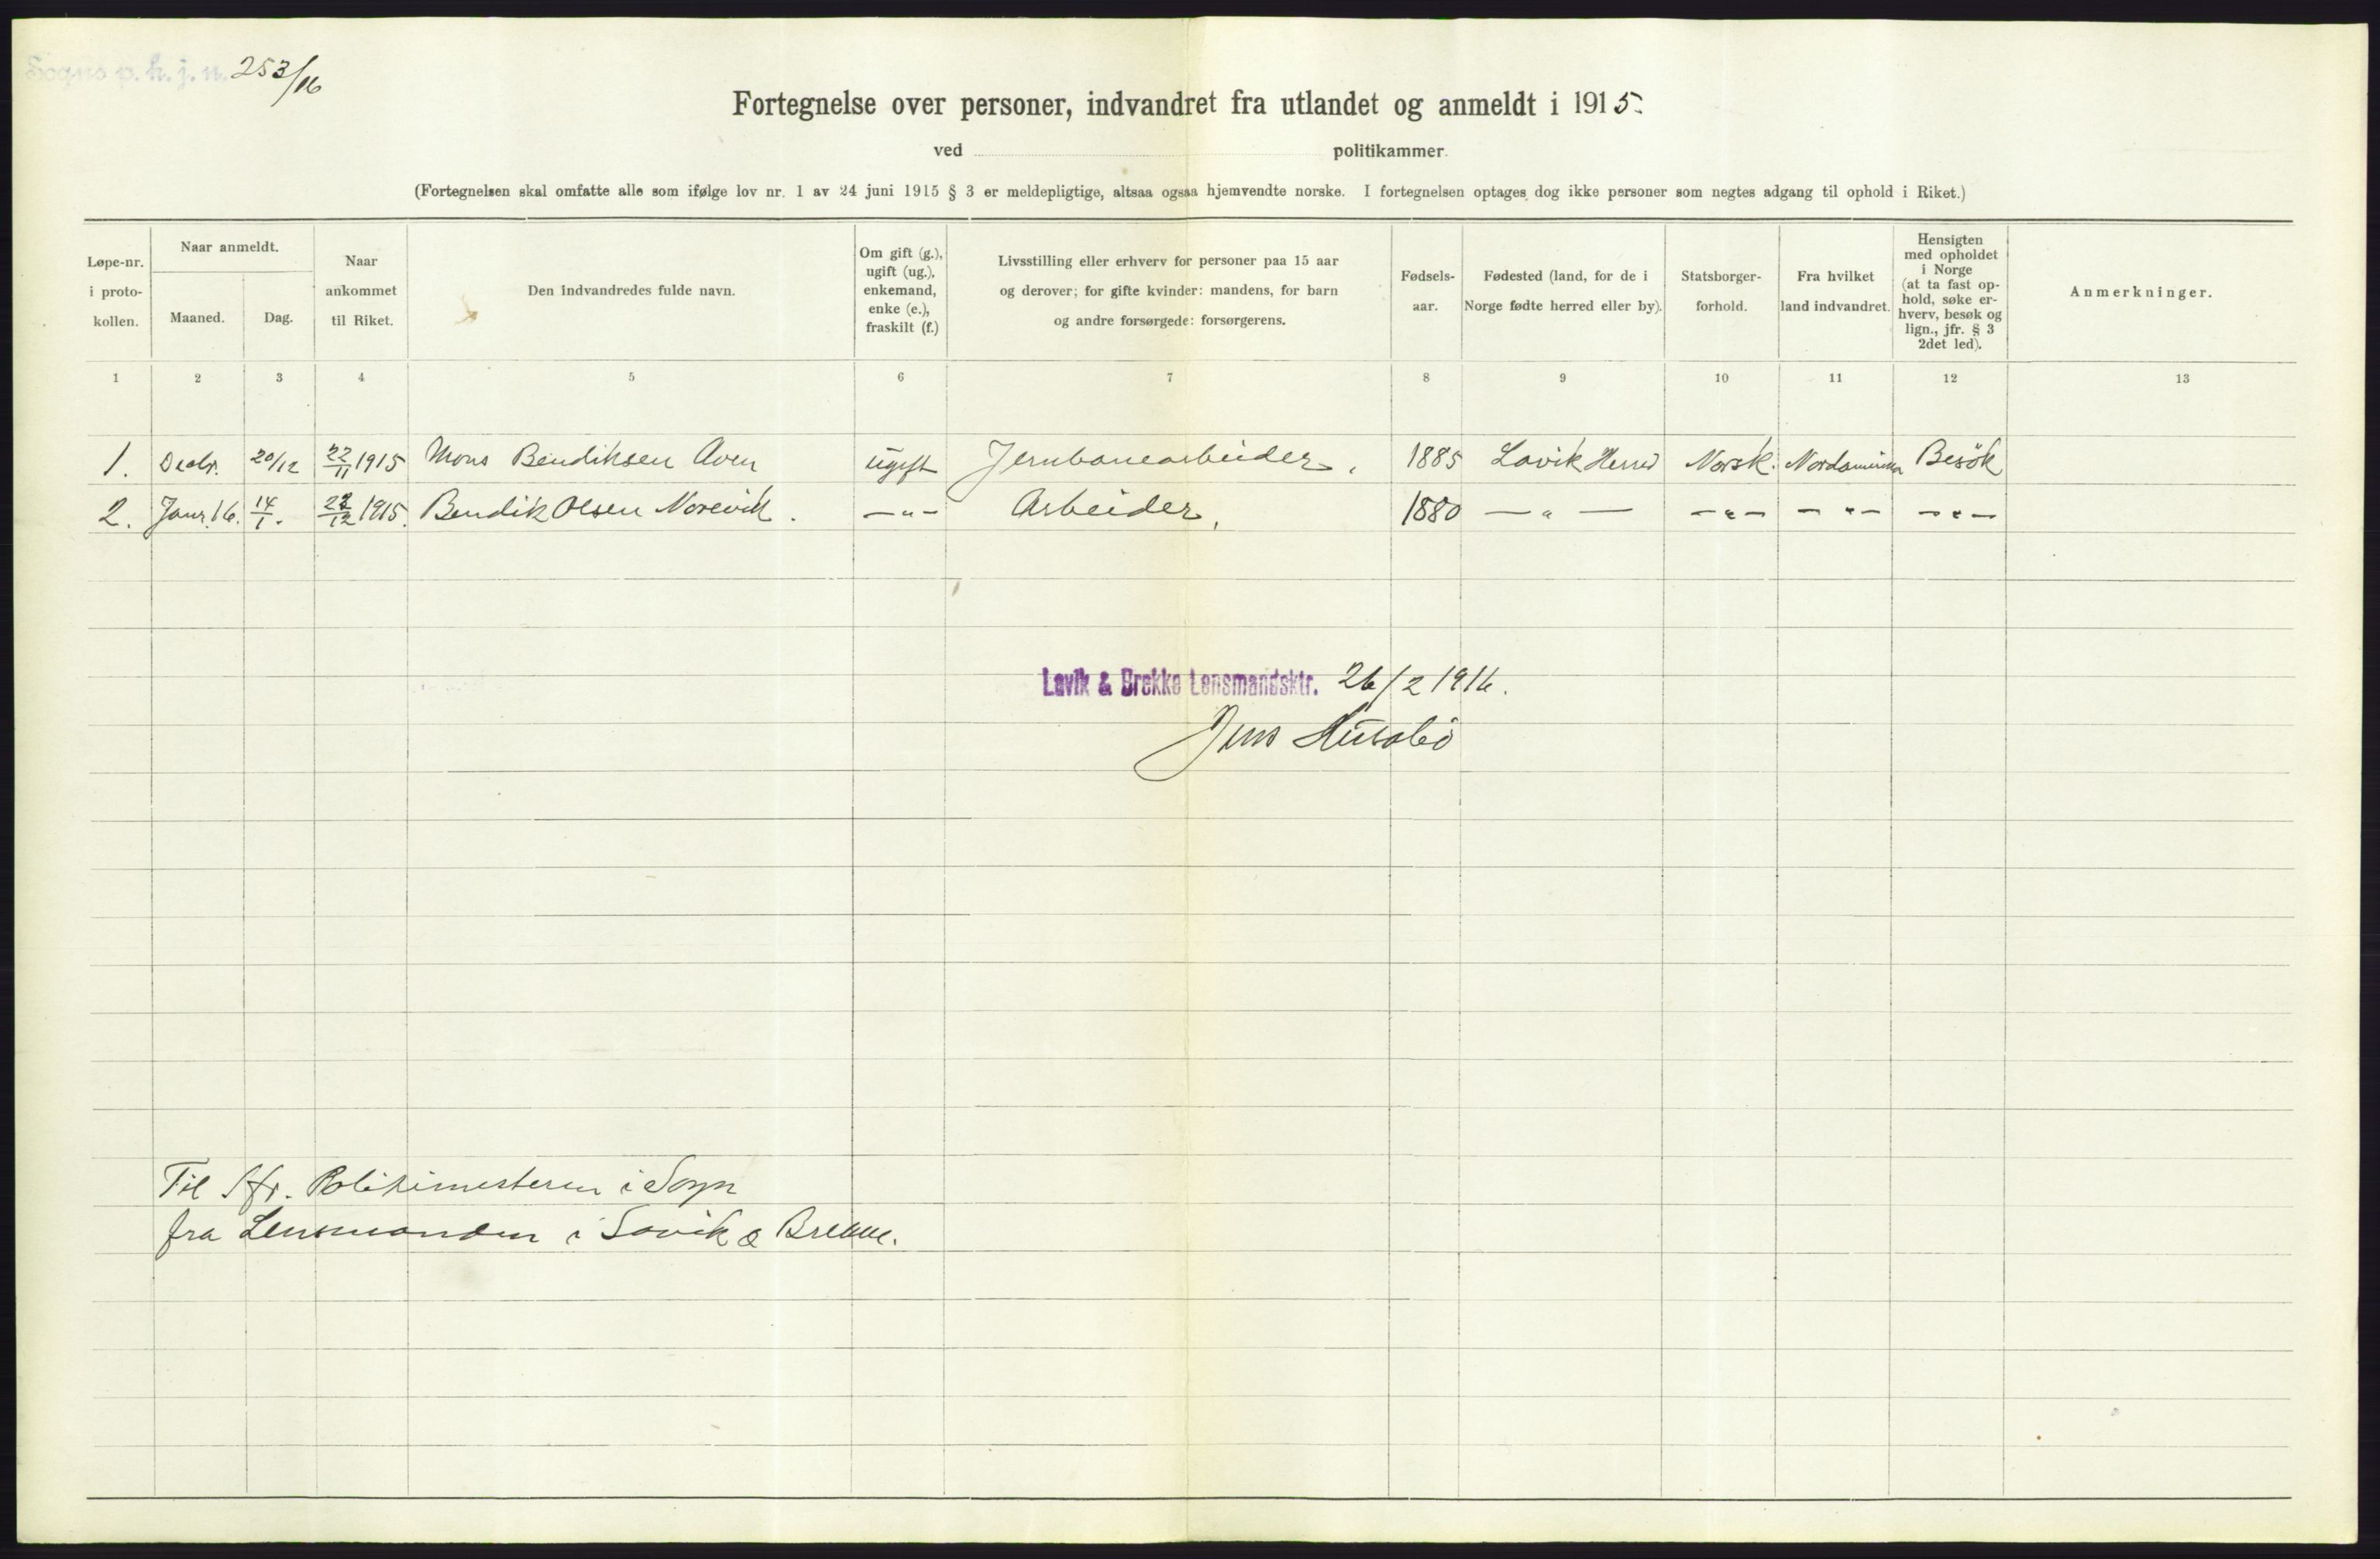 Sogns p. k. j. n. 253/16
Fortegnelse over personer, indvandret fra utlandet og anmeldt i 1915.
ved politikammer.
(Fortegnelsen skal omfatte alle som ifølge lov nr. 1 av 24 juni 1915 § 3 er meldepligtige, altsaa ogsaa hjemvendte norske. I fortegnelsen optages dog ikke personer som negtes adgang til ophold i Riket.)
Løpe-nr.
i proto-
kollen.
Naar anmeldt.
Maaned.
Dag.
Naar
ankommet
til Riket.
Den indvandredes fulde navn.
Om gift (g.),
ugift (ug.),
enkemand,
enke (e.),
fraskilt (f.)
Livsstilling eller erhverv for personer paa 15 aar
og derover; for gifte kvinder: mandens, for barn
og andre forsørgede: forsørgerens.
Fødsels-
aar.
Fødested (land, for de i
Norge fødte herred eller by).
Statsborger-
forhold.
Fra hvilket
land indvandret.
Hensigten
med opholdet
i Norge
(at ta fast op-
hold, søke er-
hverv, besøk og
lign., jfr. § 3
2det led).
Anmerkninger.
1 2 3 4 5 6 7 8 9 10 11 12 13
1. Decbr. 20/12 22/11 1915 Mons Bendiksen Aven ugift Jernbanearbeider. 1885 Lavik Herred Norsk. Nordamerika Besök
2. Janr. 16. 14/1. 22/12 1915. Bendik Olsen Norevik. —"— Arbeider. 1880 —"— —"— —"— —"—
Lavik & Brekke Lensmandsktr. 26/2 1916.
Jens Husabö
Til Hr. Politimesteren i Sogn
fra Lensmanden i Lavik & Brekke.